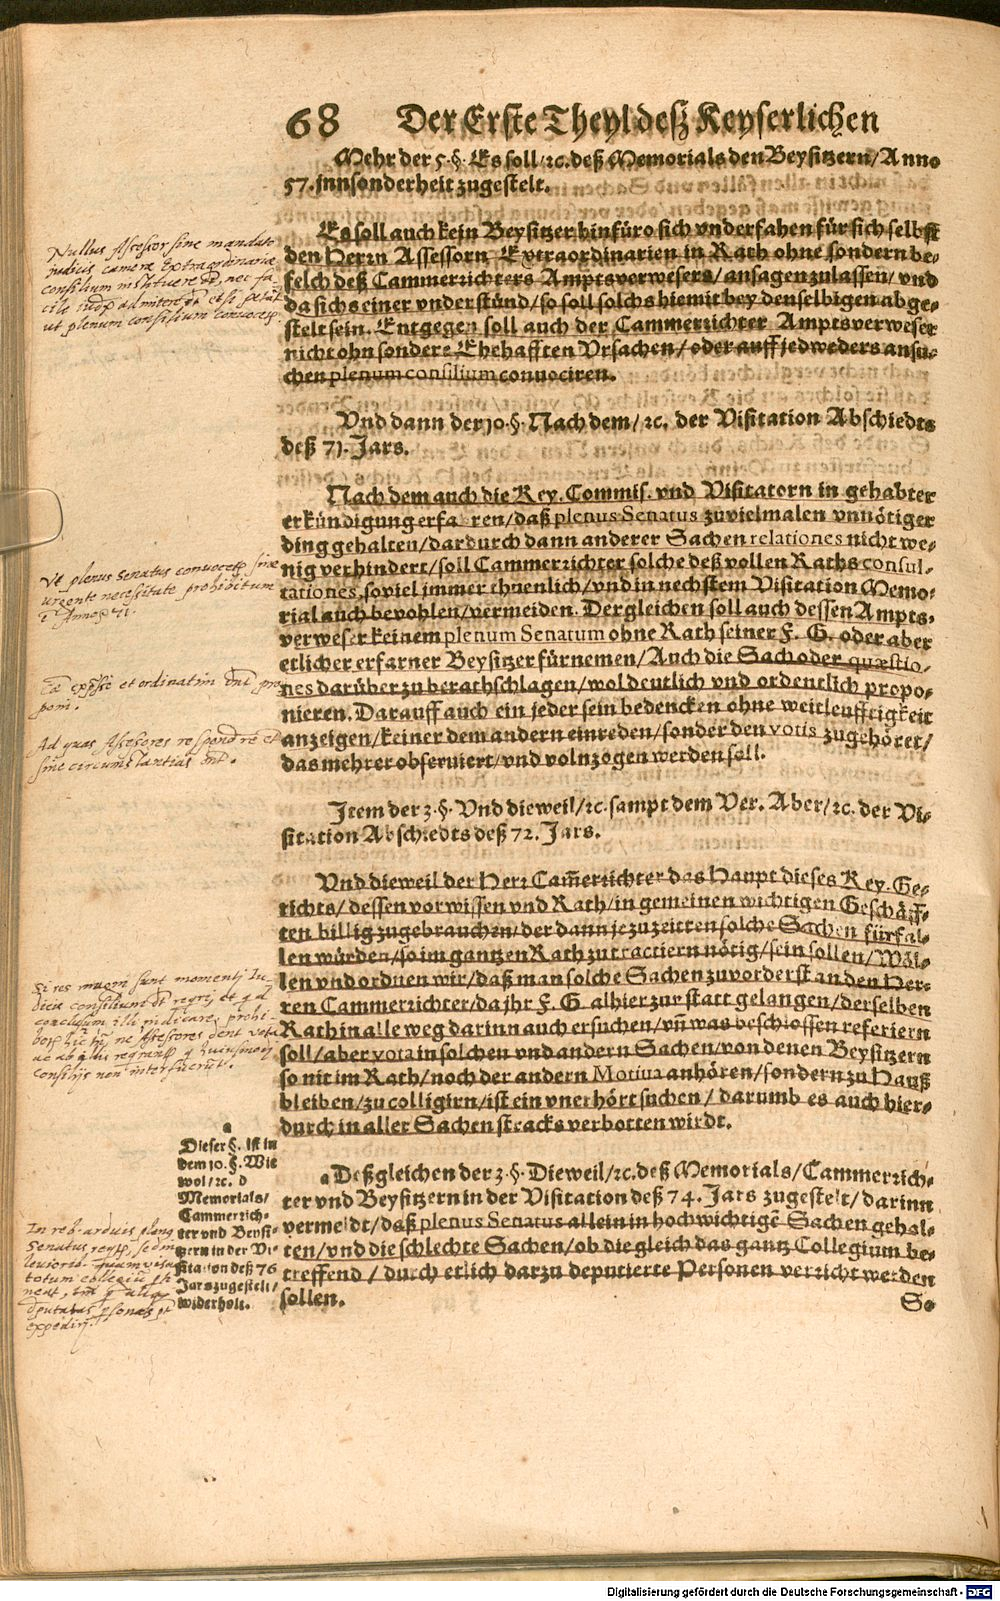 68 Der Erste Theyl deß Keyserlichen
Mehr der 5. §. Es soll/ ꝛc. deß Memorials den Beysitzern/ Anno
57. jnnsonderheit zugestelt.
Es soll auch kein Beysitzer hinfüro sich vnderfahen für sich selbst
den Herrn Assessorn Extraordinarien in Rath ohne sondern be-
felch deß Cammerrichters Amptsverwesers/ ansagen zulassen/ vnd
da sichs einer vnderstünd/ so soll solchs hiemit bey denselbigen abge-
stelt sein. Entgegen soll auch der Cammerrichter Amptsverweser
nicht ohn sondere Ehehafften Vrsachen/ oder auff jedweders ansu-
chen plenum consilium conuociren.
Vnd dann der 10. §. Nach dem/ ꝛc. der Visitation Abschiedts
deß 71. Jars.
Nach dem auch die Key. Commis. vnd Visitatorn in gehabter
erkündigung erfahren/ daß plenus Senatus zuvielmalen vnnötiger
ding gehalten/ dardurch dann anderer Sachen relationes nicht we-
nig verhindert/ soll Cammerrichter solche deß vollen Raths consul-
tationes, soviel immer thuenlich/ vnd in nechstem Visitation Memo-
rial auch bevohlen/ vermeiden. Dergleichen soll auch dessen Ampts-
verweser keinem plenum Senatum ohne Rath seiner F. G. oder aber
etlicher erfarner Beysitzer fürnemen/ Auch die Sach oder quæstio-
nes darüber zu berathschlagen/ wol deutlich vnd ordentlich propo-
nieren. Darauff auch ein jeder sein bedencken ohne weitleufftigkeit
anzeigen/ keiner dem andern einreden/ sonder den votis zugehöret/
das mehrer obseruiert/ vnd volnzogen werden soll.
Item der 3. §. Vnd dieweil/ ꝛc. sampt dem Ver. Aber/ ꝛc. der Vi-
sitation Abschiedts deß 72. Jars.
Vnd dieweil der Herr Cam̃errichter das Haupt dieses Key. Ge-
richts/ dessen vorwissen vnd Rath/ in gemeinen wichtigen Geschäff-
ten billig zugebrauchen/ der dann je zu zeitten solche Sachen fürfal-
len würden/ so im gantzen Rath zu tractiern nötig/ sein sollen/ Wöl-
len vnd ordnen wir/ daß man solche Sachen zuvorderst an den Her-
ren Cammerrichter/ da jhr F. G. alhier zur statt gelangen/ derselben
Rath in alle weg darinn auch ersuchen/ vñ was beschlossen referiern
soll/ aber vota in solchen vnd andern Sachen/ von denen Beysitzern
so nit im Rath/ noch der andern Motiua anhören/ sondern zu Hauß
bleiben/ zu colligirn/ ist ein vnerhört suchen/ darumb es auch hier-
durch in aller Sachen stracks verbotten wirdt.
a Deßgleichen der 3. §. Dieweil/ ꝛc. deß Memorials/ Cammerrich-
ter vnd Beysitzern in der Visitation deß 74. Jars zugestelt/ darinn
vermeldt/ daß plenus Senatus allein in hochwichtigē Sachen gehal-
ten/ vnd die schlechte Sachen/ ob die gleich das gantz Collegium be-
treffend/ durch etlich darzu deputierte Personen verricht werden
sollen.
So
Nullus Assessor sine mandato
judicis camerae Extraordinariae
consilium instituere
ut plenum consilium convocetur
Ut plenus Senatus convocetur sine
urgente necessitate prohibitum
Anno 71.
et ordinatim
poni.
Ad quas Assessores
sine circumstantiis
Si res sunt momenti Iu-
dicis consilium
ne Assessores
consilijs non interfuerunt.
In reb. arduis plenus
Senatus
totum collegium
deputatas personas
expediri.
a
Dieser §. ist in
dem 10. §. Wie
wol/ ꝛc. d
Memorials/
Cammerrich-
ter vnd Beysi-
tzern in der Vi-
sitation deß 76
Jars zugestelt/
widerholt.
Digitalisierung gefördert durch die Deutsche Forschungsgemeinschaft - DFG